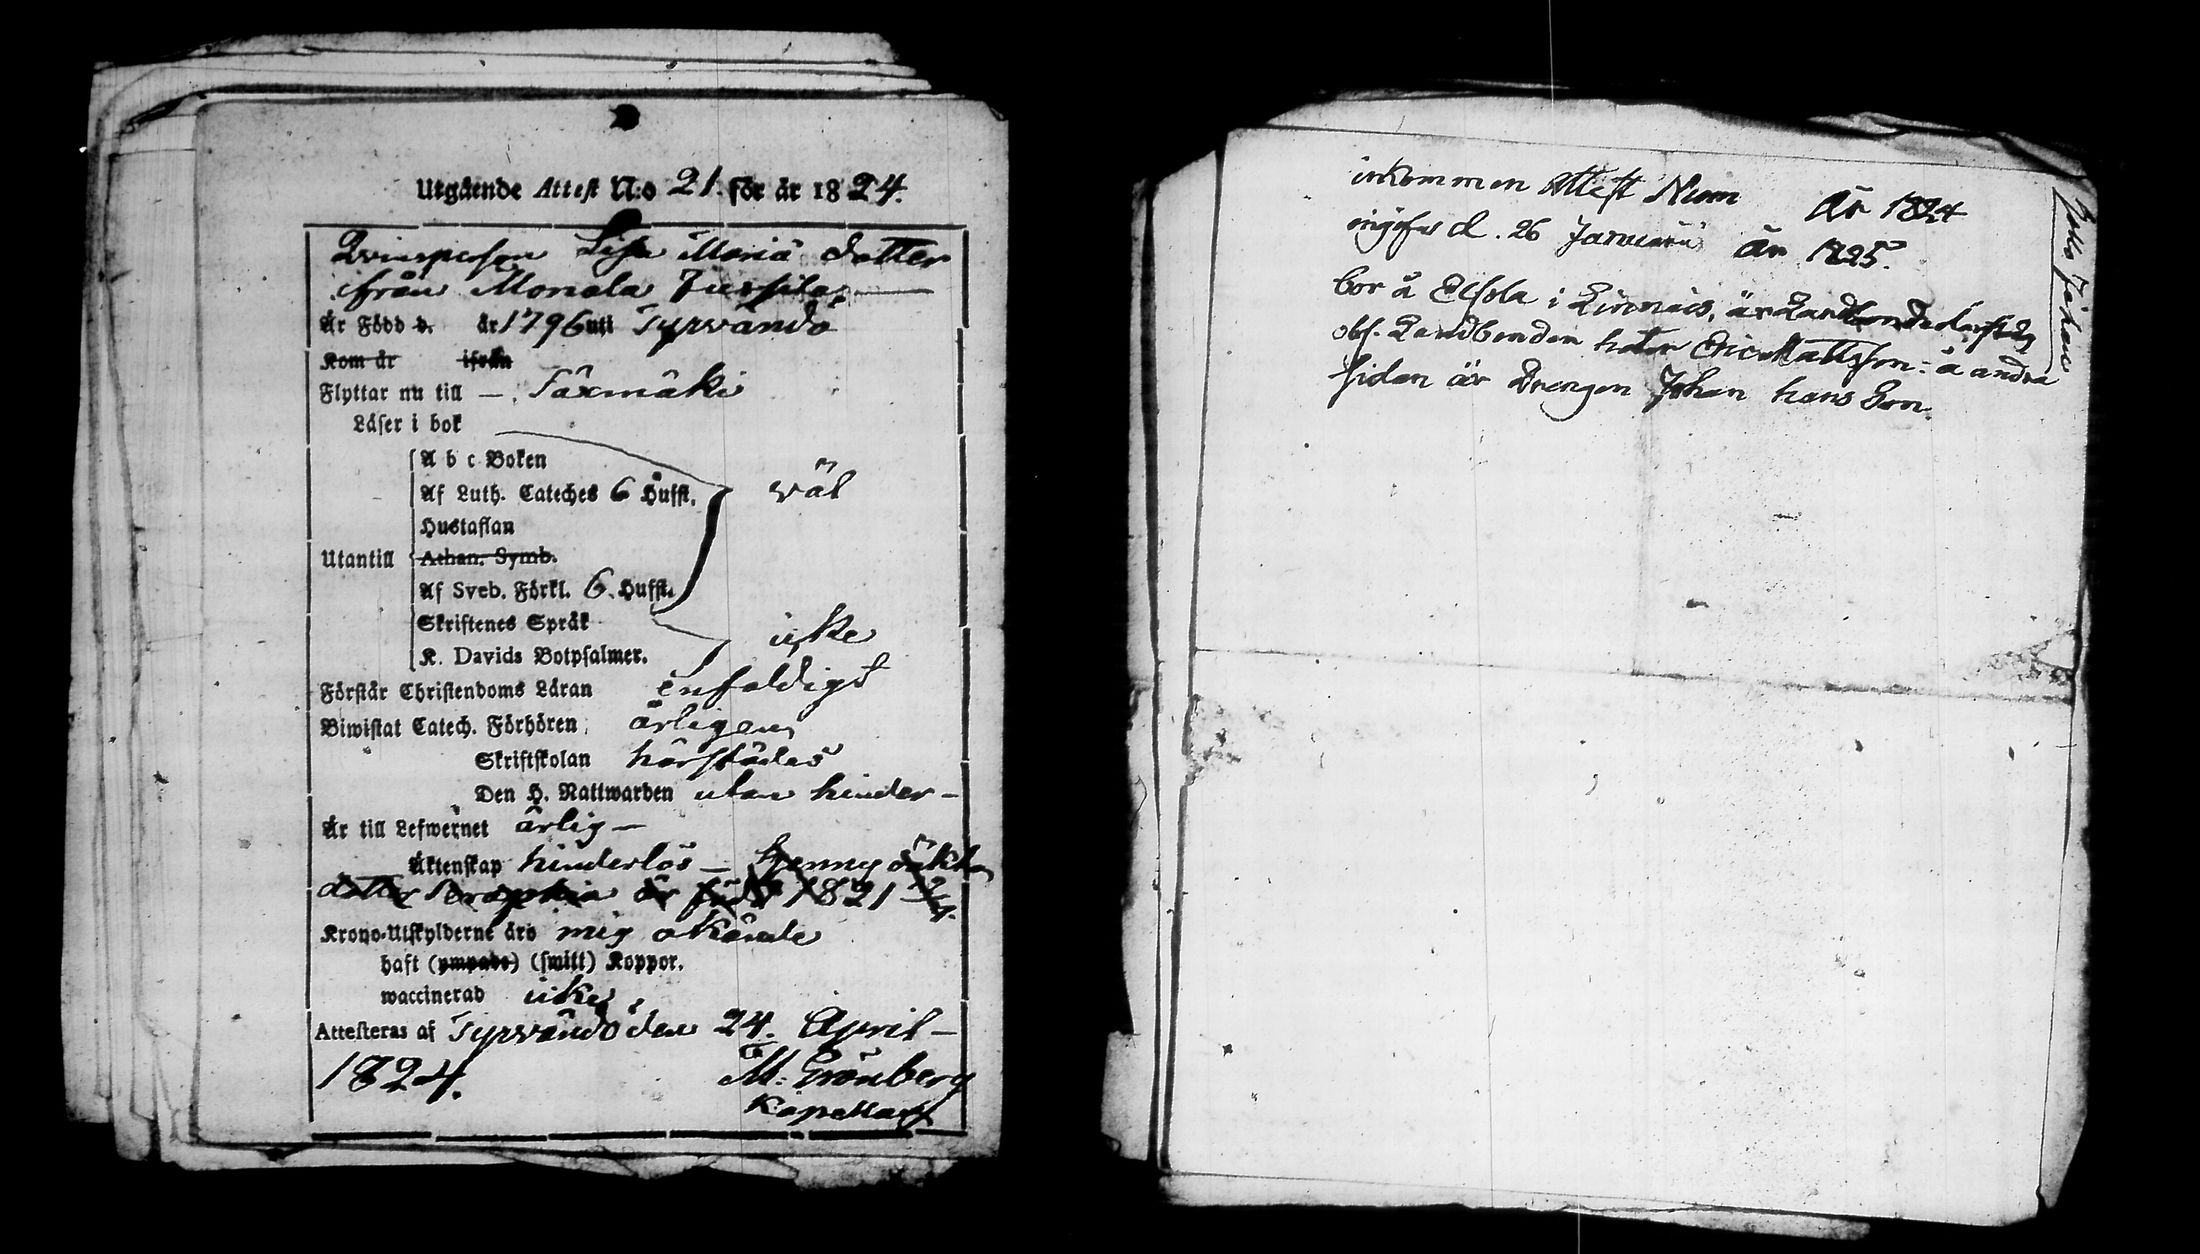 Utgående Attest N:o 21. För år 1824.
Qvinsperson Lisa Maria dotter
från Monala Jussila
Är Född d. år 1796 uti Tyrvändö
Kom år ifrån
Flyttar nu till — Säxmäki
Läser i bok
A b c Boken
Af Luth. Cateches 6 Hufst. väl
Hustaflan
Utantill Athan. Symb.
Af Sveb. Förkl. 6. Hufst.
Skriftenes Språk icke
K. Davids Botpsalmer.
Förstår Christendoms Läran enfaldigt
Biwistat Catech. Förhören årligen
Skriftskolan härstädes
Den H. Nattwarden utan hinder —
Är till Lefwernet ärlig —
Äktenskap hinderlös — oäkta
dotter är född 1821
Krono-Utskylderne äro mig okände
haft (ympade) (smitt) Koppor.
waccinerad icke
Attesteras af Tyrvändö den 24. April —
1824. M: Grönberg
Kapellan
inkommen Attest Num År 1824
d. 26 Januarii År 1825.
bor å i är
obs. Landbonden heter Eric Mattsson: å andra
sidan är Drengen Johan hans Son.
Johan